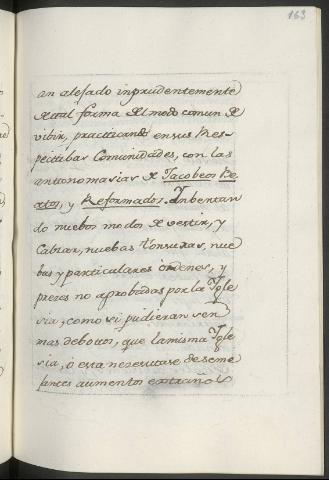 163
an alejado inprudentemente
de tal forma del modo comun de
vibir, practicando en sus Res-
pectibas Comunidades, con las
antonomasias de Jacobeos Be
atos, y Reformados. Ynbentan
do nuebos modos de vestir, y
Calzar, nuebas tonsuras, nue
bas y particulares òrdenes, y
prezes no aprobadas por la Ygle
sia, como si pudieran ser
mas debotos, que la misma Ygle
sia, ò esta nezesitase de seme
jantes aumentos extraños